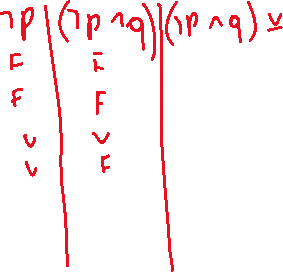 ¬p | (¬p ∧ q) | (¬p ∧ q) ⊻
F | F
F | F
V | V
V | F